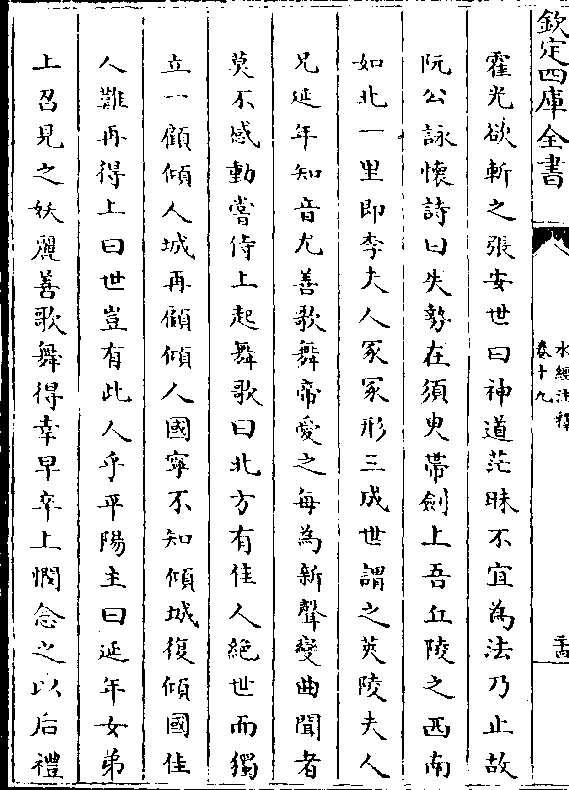 欽定四庫全書
水經注釋
卷十九
霍光欲斬之張安世曰神道茫昧不宜為法乃止故
阮公詠懷詩曰失勢在須臾帶劍上吾丘陵之西南
如北一里即李夫人冢冢形三成世謂之英陵夫人
兄延年知音尤善歌舞帝愛之每為新聲變曲聞者
莫不感動嘗侍上起舞歌曰北方有佳人絕世而獨
立一顧傾人城再顧傾人國寧不知傾城復傾國佳
人難再得上曰世豈有此人乎平陽主曰延年女弟
上召見之妖麗善歌舞得幸早卒上憫念之以后禮